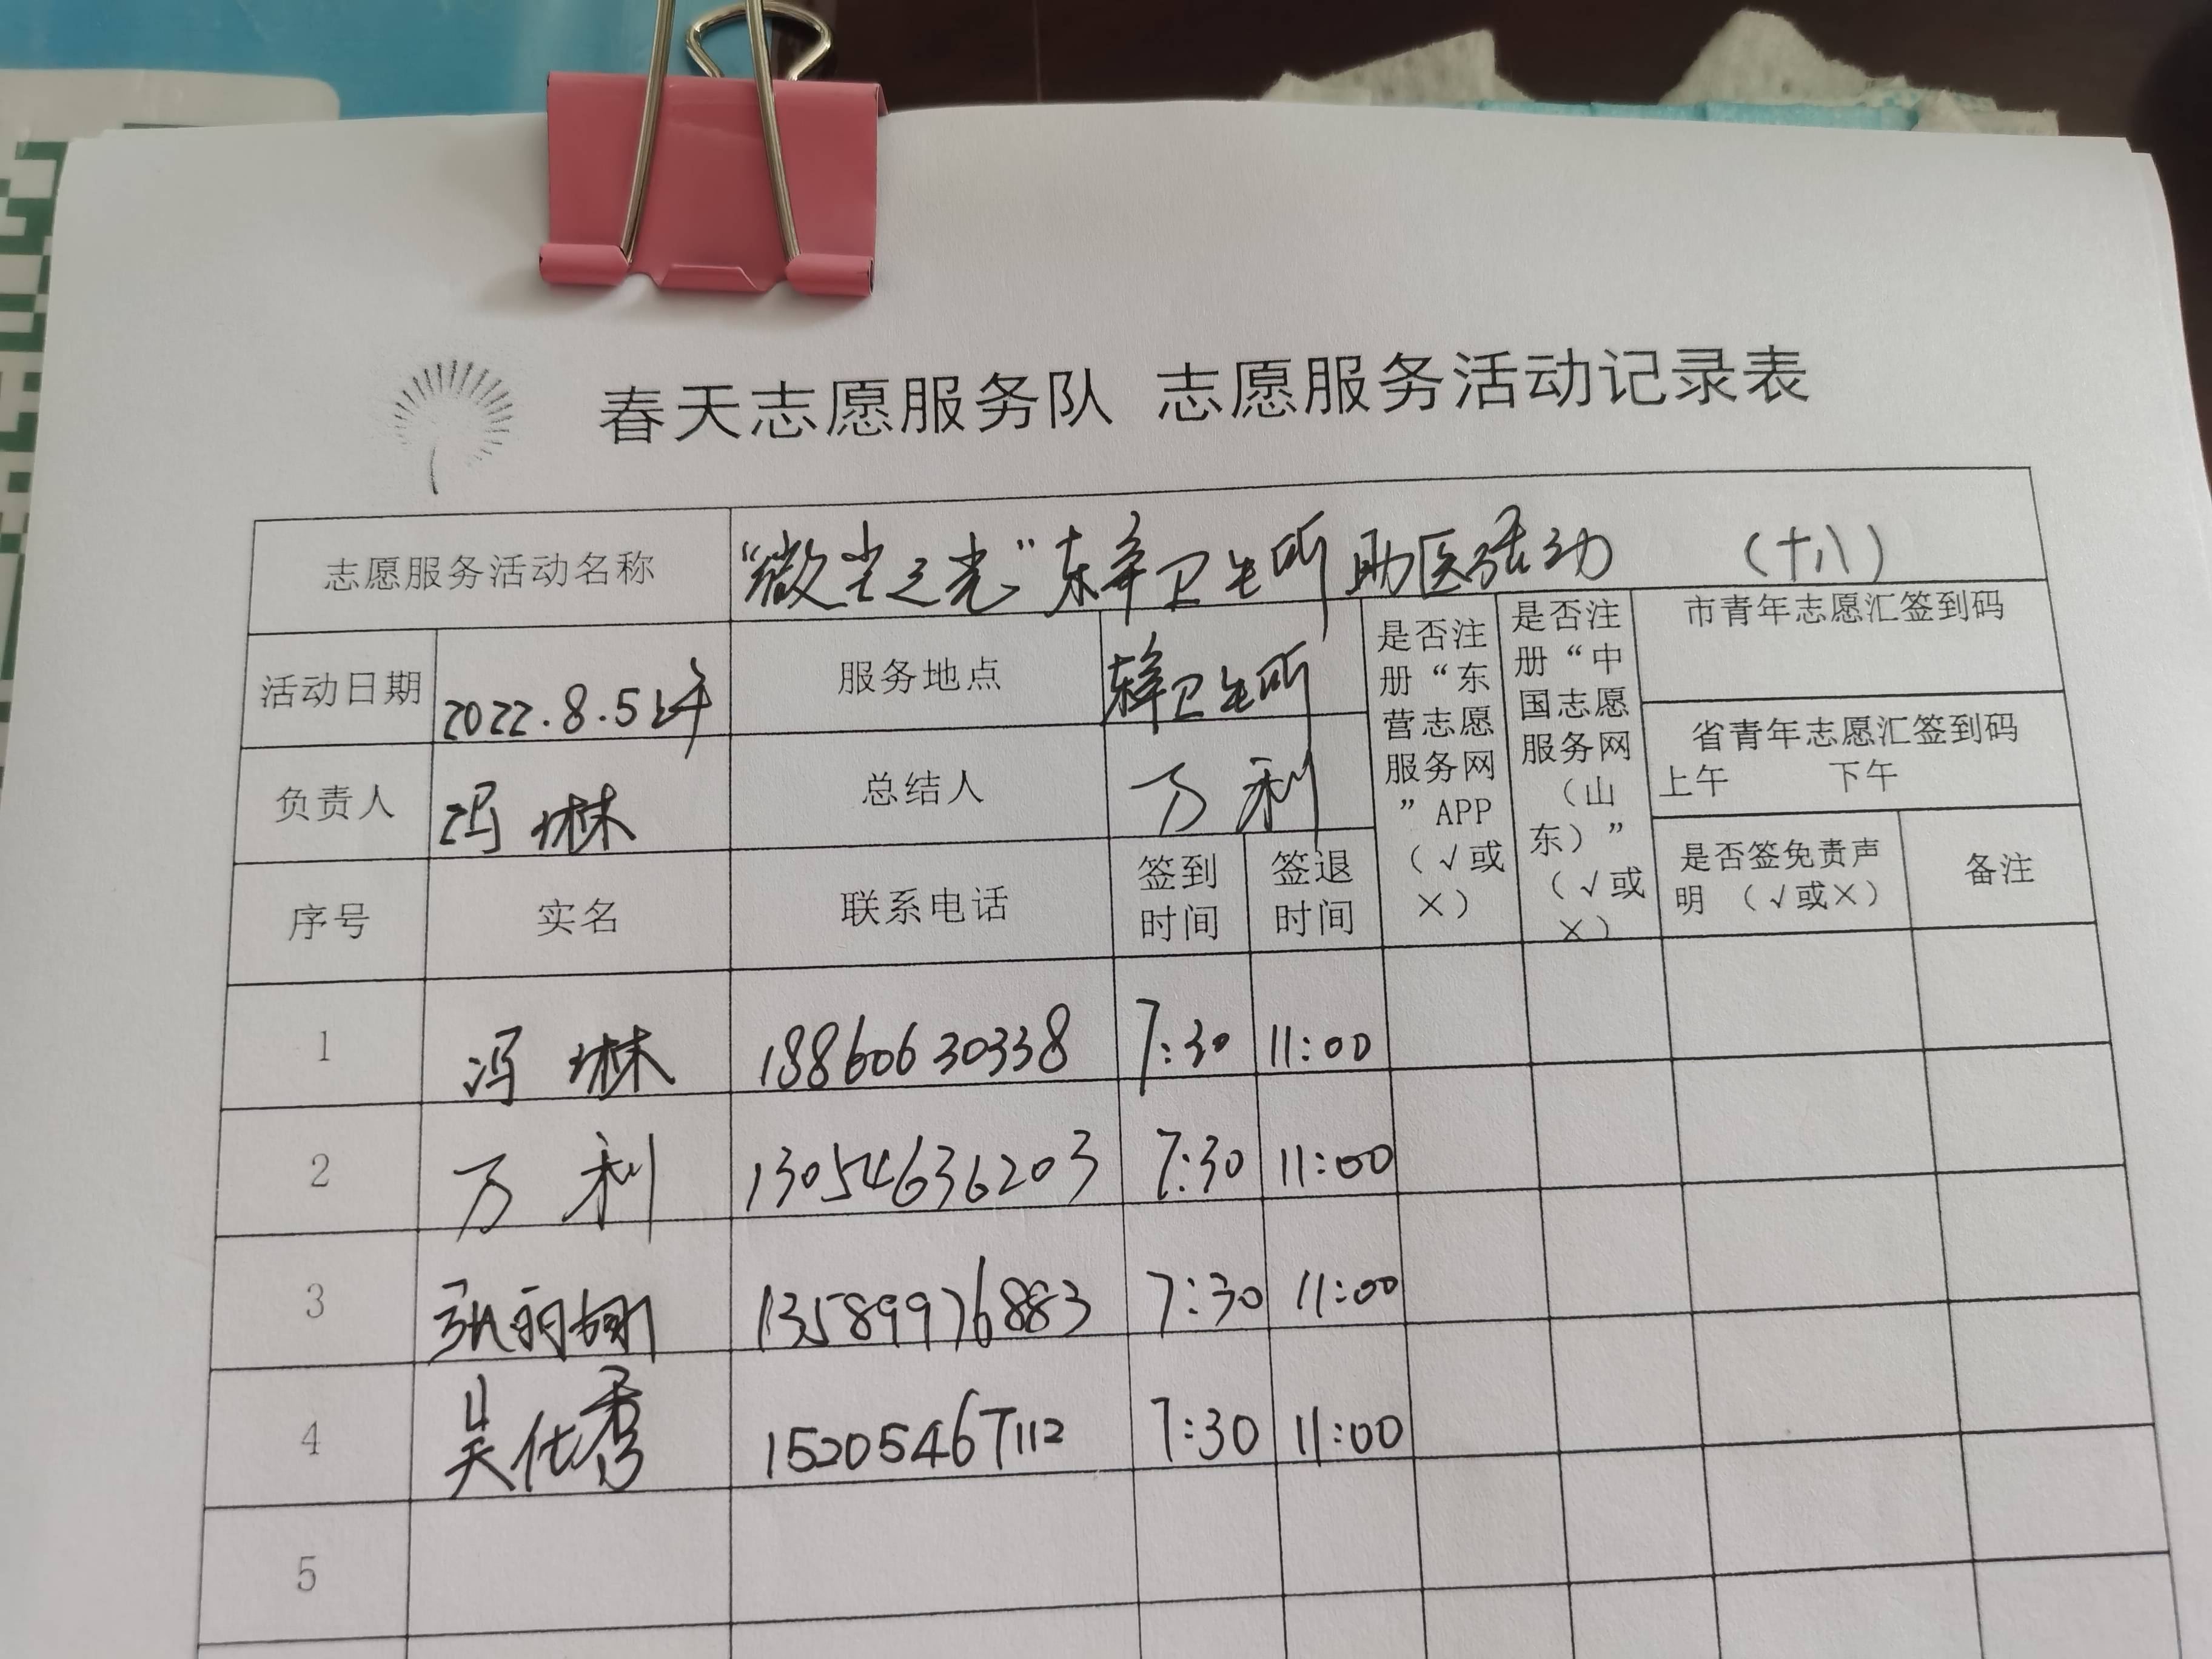 春天志愿服务队 志愿服务活动记录表
志愿服务活动名称 “微尘之光”东辛卫生所助医活动 （十八）
活动日期 2022.8.5上午 服务地点 东辛卫生所
负责人 冯琳 总结人 万利
是否注册“东营志愿服务网”APP（√或×）
是否注册“中国志愿服务网（山东）”（√或×）
市青年志愿汇签到码
省青年志愿汇签到码
上午 下午
是否签免责声明 （√或×） 备注
序号 实名 联系电话 签到时间 签退时间
1 冯琳 18860630338 7:30 11:00
2 万利 13054636203 7:30 11:00
3 张丽 13589976883 7:30 11:00
4 吴仕秀 15205467112 7:30 11:00
5